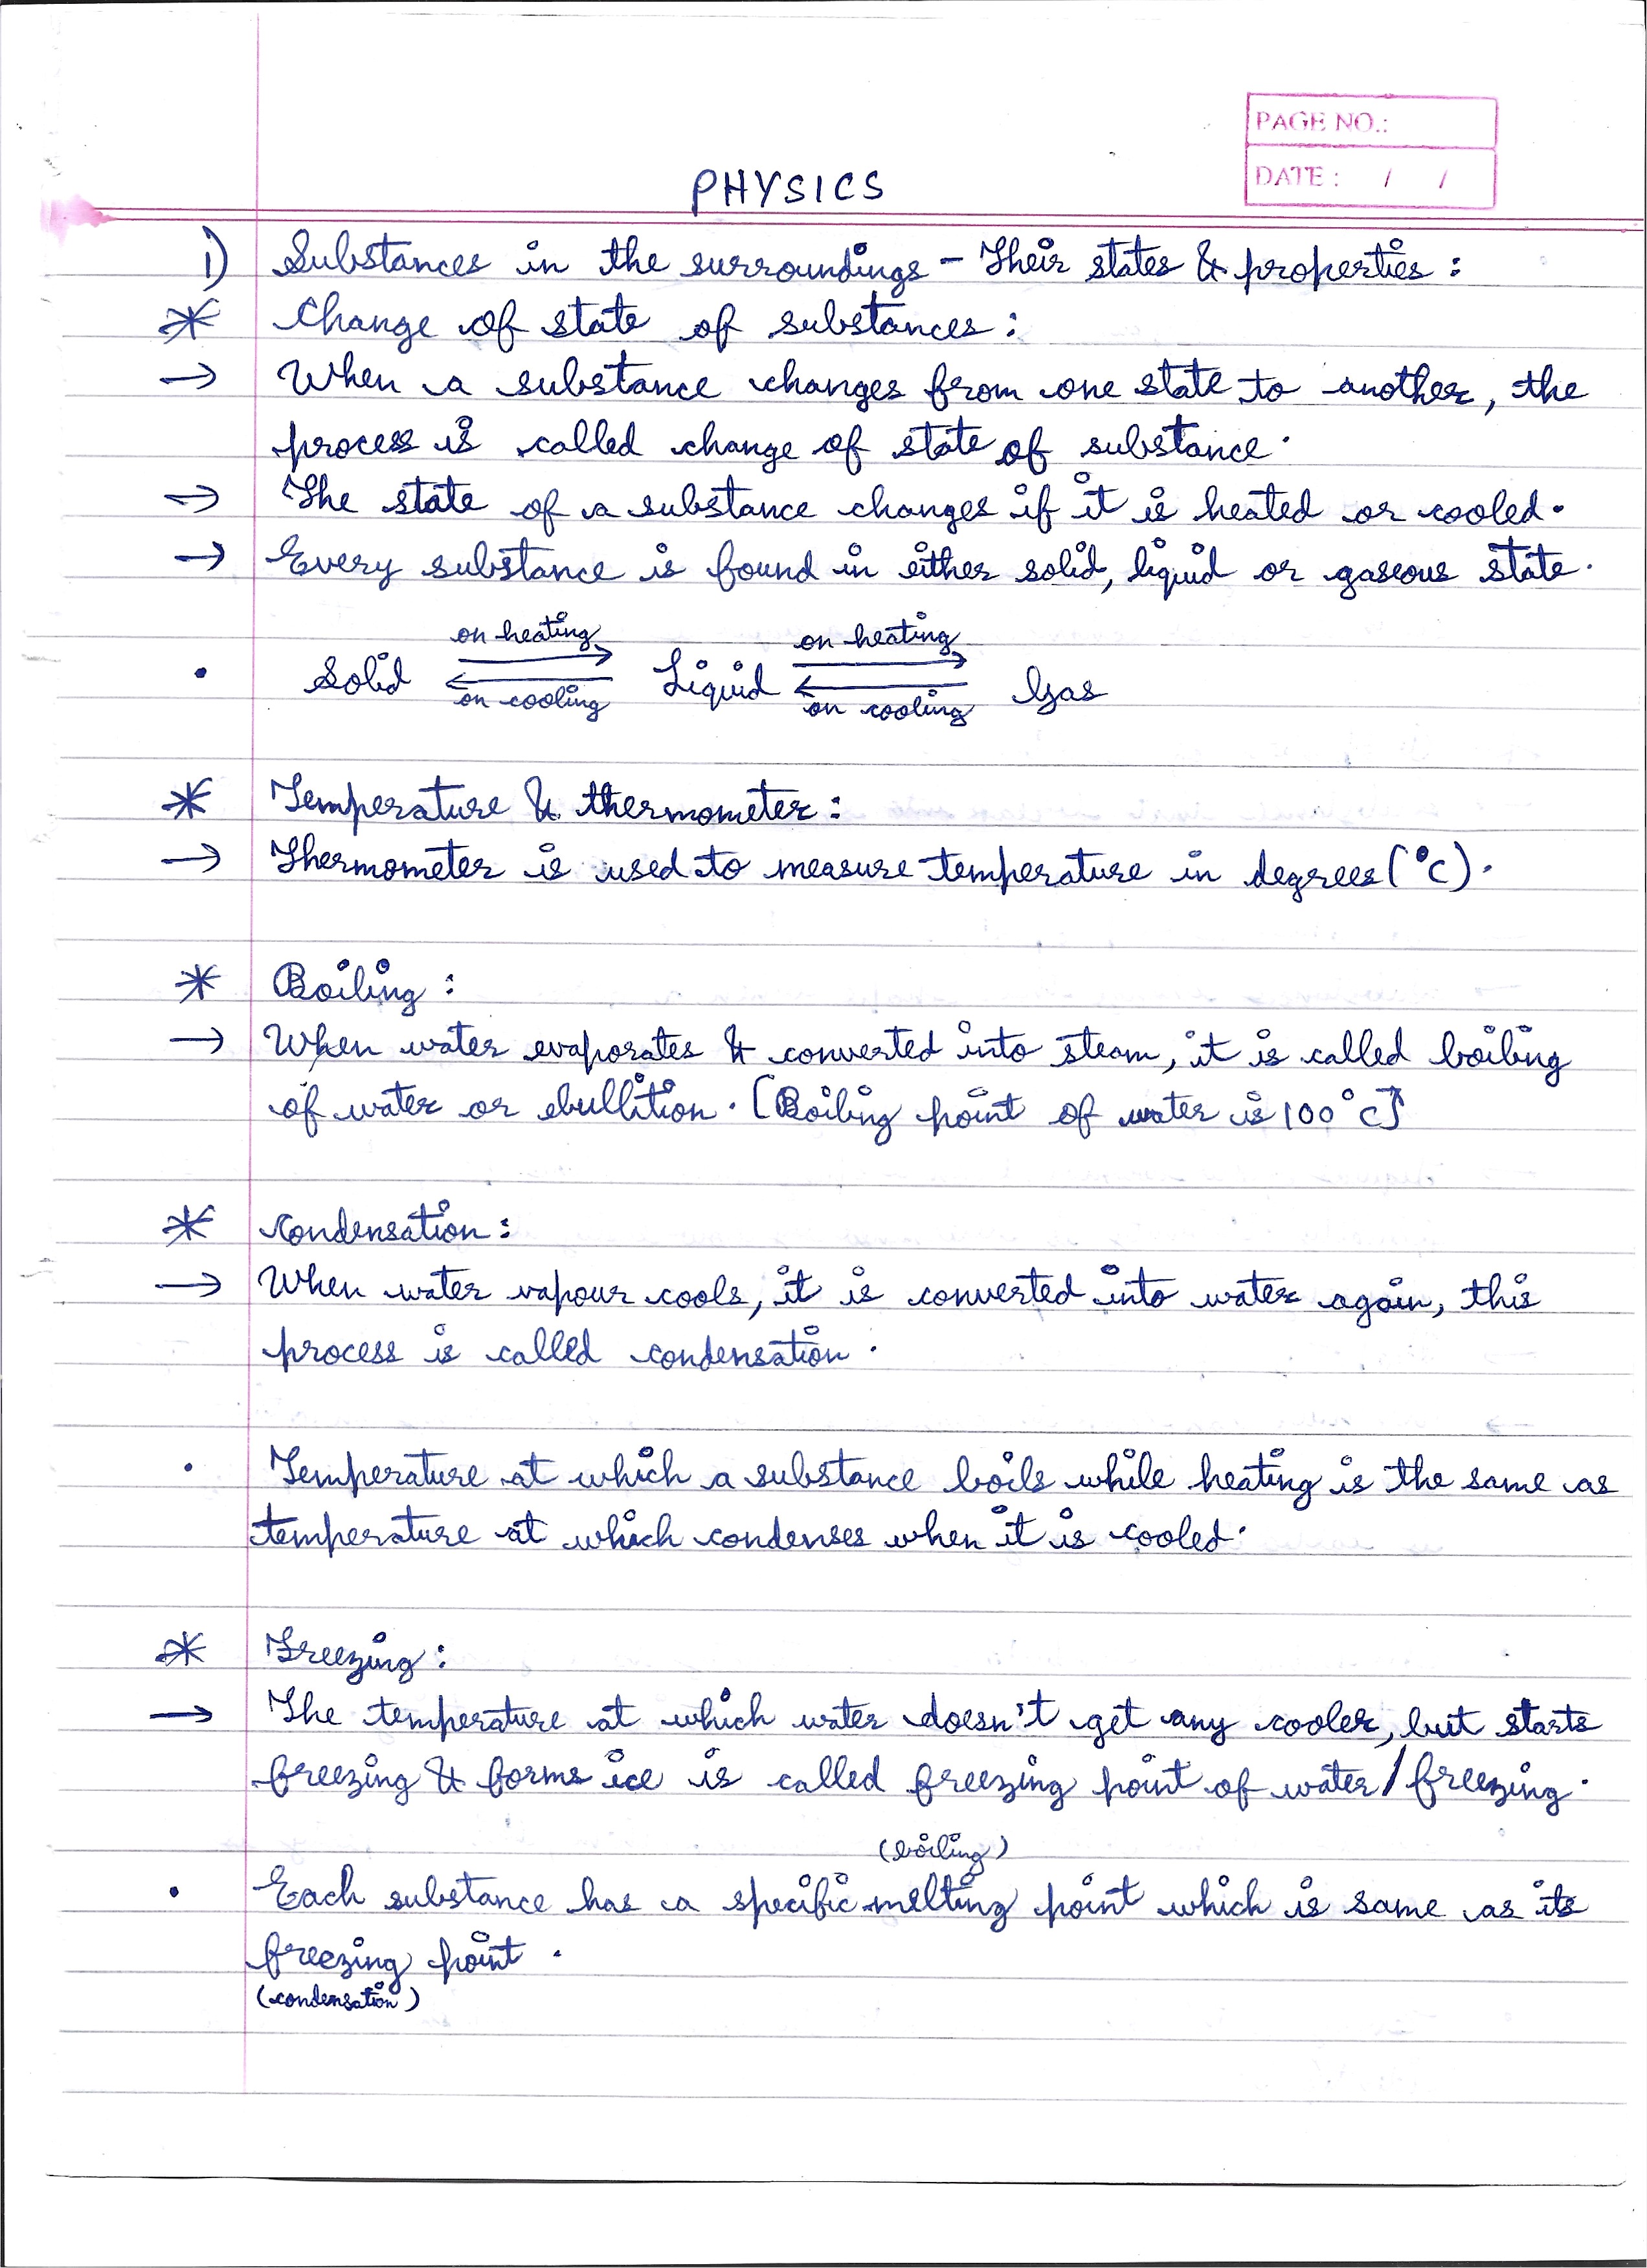 PAGE NO.:
DATE : / /
PHYSICS
i) Substances in the surroundings - Their states & properties :
* Change of state of substances :
→ When a substance changes from one state to another, the
process is called change of state of substance.
→ The state of a substance changes if it is heated or cooled.
→ Every substance is found in either solid, liquid or gaseous state.
on heating on heating
• Solid ⇌ Liquid ⇌ Gas
on cooling on cooling
* Temperature & thermometer :
→ Thermometer is used to measure temperature in degrees (°C).
* Boiling :
→ When water evaporates & converted into steam, it is called boiling
of water or ebullition. [Boiling point of water is 100°C]
* Condensation :
→ When water vapour cools, it is converted into water again, this
process is called condensation.
• Temperature at which a substance boils while heating is the same as
temperature at which condenses when it is cooled.
* Freezing :
→ The temperature at which water doesn't get any cooler, but starts
freezing & forms ice is called freezing point of water / freezing.
(boiling)
• Each substance has a specific melting point which is same as its
freezing point.
(condensation)